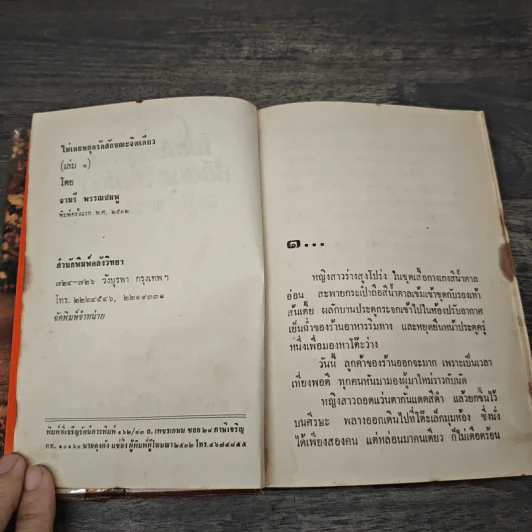 ไม่เคยหยุดรักสักขณะจิตเดียว
(เล่ม ๑)
โดย
จามรี พรรณชมพู
พิมพ์ครั้งแรก พ.ศ. ๒๕๓๒
สำนักพิมพ์คลังวิทยา
๗๒๔-๗๒๖ วังบูรพา กรุงเทพฯ
โทร. ๒๒๒๔๕๔๖, ๒๒๑๙๓๓๑
จัดพิมพ์จำหน่าย
พิมพ์ที่เจริญรัตน์การพิมพ์ ๑๖๒/๔๓ ถ. เพชรเกษม ซอย ๒๔ ภาษีเจริญ
กท. ๑๐๑๖๐ ผู้พิมพ์ผู้โฆษณา ๒๕๓๒ โทร. ๔๖๗๔๔๕๕
๑...
หญิงสาวร่างสูงโปร่ง ในชุดเสื้อกางเกงสีน้ำตาล
อ่อน สะพายกระเป๋าถือสีน้ำตาลเข้มเข้าชุดกับรองเท้า
ส้นเตี้ย ผลักบานประตูกระจกเข้าไปในห้องปรับอากาศ
เย็นฉ่ำของร้านอาหารริมทาง และหยุดยืนหน้าประตูครู่
หนึ่งเพื่อมองหาโต๊ะว่าง
วันนี้ ลูกค้าของร้านออกจะมาก เพราะเป็นเวลา
เที่ยงพอดี ทุกคนหันมามองผู้มาใหม่ราวกับนัด
หญิงสาวถอดแว่นตากันแดดสีดำ แล้วยกขึ้นไว้
บนศีรษะ พลางออกเดินไปที่โต๊ะเล็กมุมห้อง ซึ่งนั่ง
ได้เพียงสองคน แต่หล่อนมาคนเดียว ก็ไม่เดือดร้อน